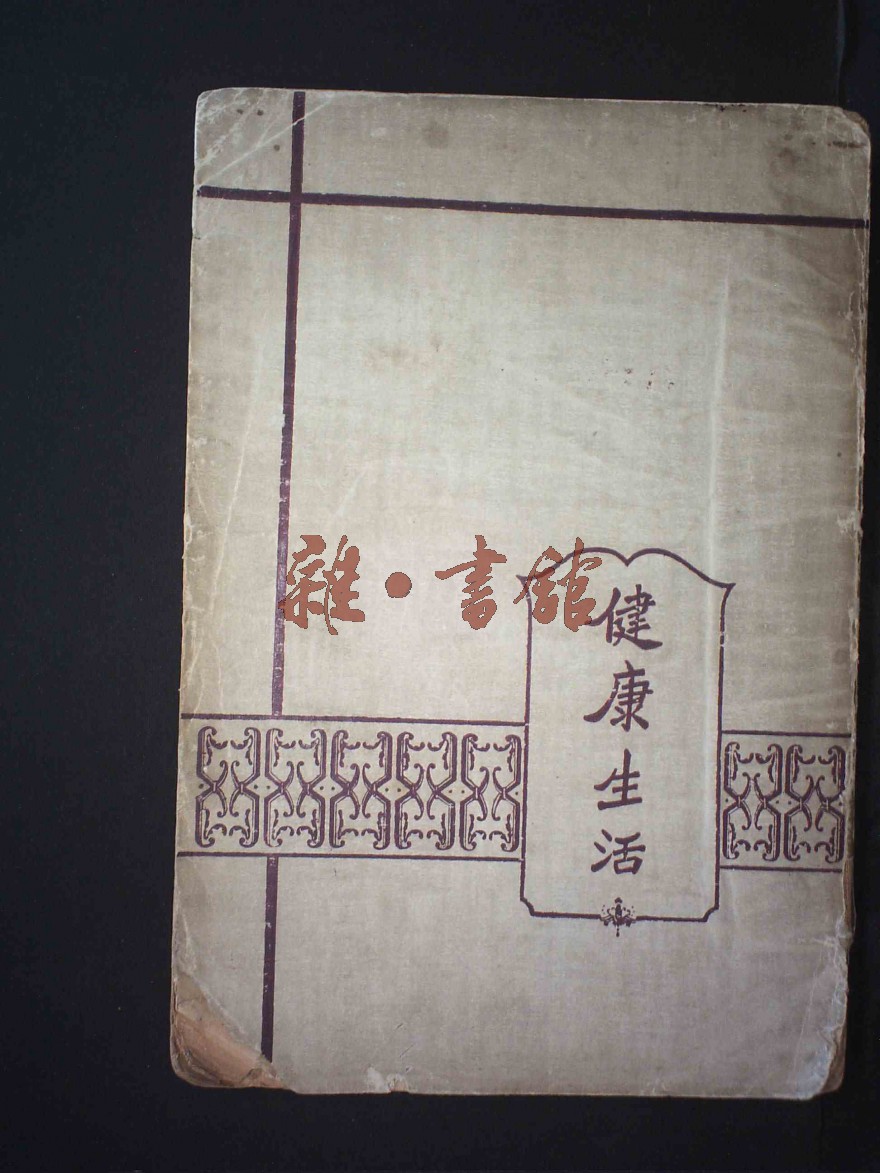 雜·書館
健康生活